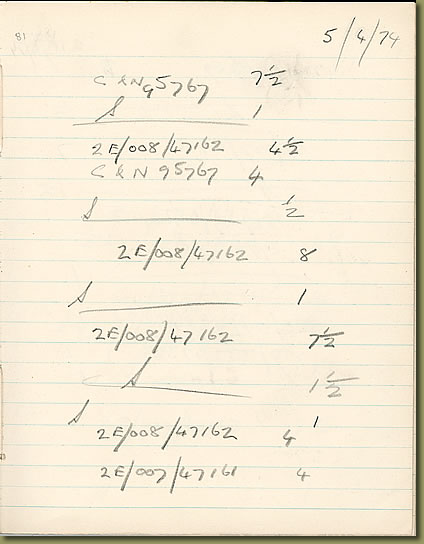 81
5/4/74
C & N 95767 7½
S 1
2E/008/47162 4½
C & N 95767 4
S ½
2E/008/47162 8
S 1
2E/008/47162 7½
S 1½
S 1
2E/008/47162 4
2E/007/47161 4